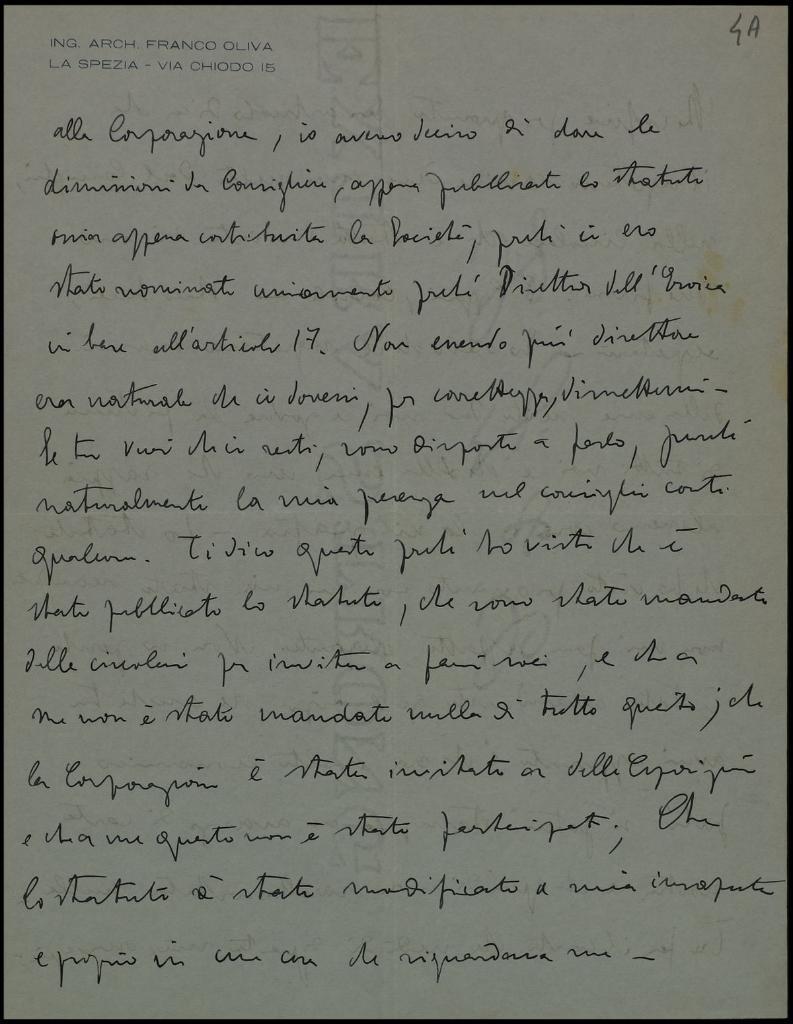 4A
ING. ARCH. FRANCO OLIVA
LA SPEZIA - VIA CHIODO 15
alla Corporazione, io avevo deciso di dare le
dimissioni da Consigliere, appena pubblicato lo statuto
ossia appena costituita la Società, perché ci ero
stato nominato unicamente perché Direttore dell'Eroica
in base all'articolo 17. Non essendo più direttore
era naturale che io dovessi, per correttezza, dimettermi -
Se tu vuoi che ci resti, sono disposto a farlo, purché
naturalmente la mia presenza nel consiglio conti
qualcosa. Ti dico questo perché ho visto che è
stato pubblicato lo statuto, che sono state mandate
delle circolari per invitare a farsi soci, e che a
me non è stato mandato nulla di tutto questo; che
la Corporazione è stata invitata a delle Esposizioni
e che a me questo non è stato partecipato; Che
lo statuto è stato modificato a mia insaputa
e proprio in una cosa che riguardava me -